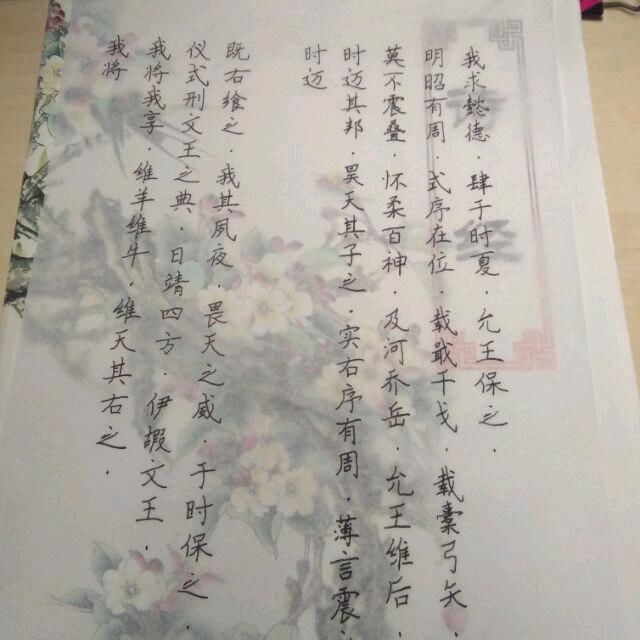 我将
我将我享.维羊维牛.维天其右之.
仪式刑文王之典.日靖四方.伊嘏文王.
既右飨之.我其夙夜.畏天之威.于时保之.
时迈
时迈其邦.昊天其子之.实右序有周.薄言震.
莫不震叠.怀柔百神.及河乔岳.允王维后.
明昭有周.式序在位.载戢干戈.载弓矢
我求懿德.肆于时夏.允王保之.